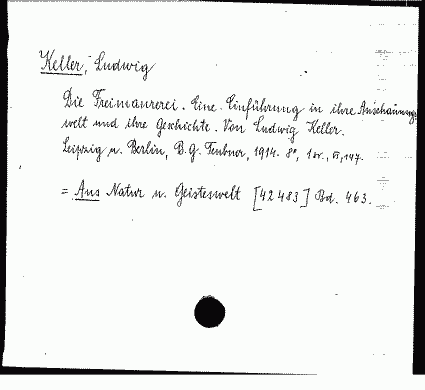 Keller, Ludwig
Die Freimaurerei. Eine Einführung in ihre Anschauungs-
welt und ihre Geschichte. Von Ludwig Keller.
Leipzig u. Berlin, B. G. Teubner, 1914. 8°,
= Aus Natur u. Geisteswelt [42 483] Bd. 463.